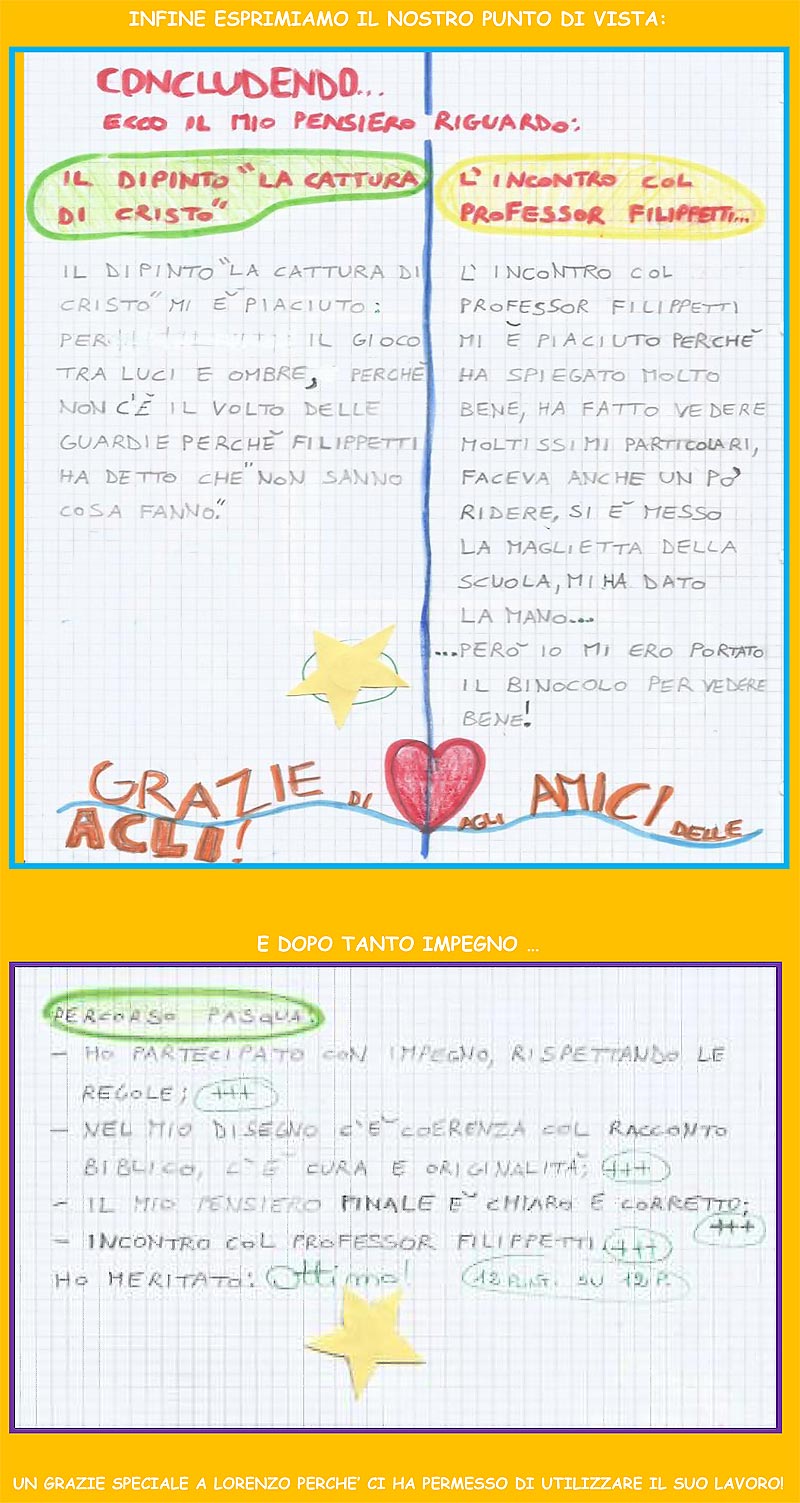 INFINE ESPRIMIAMO IL NOSTRO PUNTO DI VISTA:
CONCLUDENDO...
ECCO IL MIO PENSIERO RIGUARDO:
IL DIPINTO "LA CATTURA
DI CRISTO"
IL DIPINTO "LA CATTURA DI
CRISTO" MI È PIACIUTO:
PER IL GIOCO
TRA LUCI E OMBRE, PERCHÈ
NON C'È IL VOLTO DELLE
GUARDIE PERCHÈ FILIPPETTI
HA DETTO CHE "NON SANNO
COSA FANNO."
L'INCONTRO COL
PROFESSOR FILIPPETTI...
L'INCONTRO COL
PROFESSOR FILIPPETTI
MI È PIACIUTO PERCHÈ
HA SPIEGATO MOLTO
BENE, HA FATTO VEDERE
MOLTISSIMI PARTICOLARI,
FACEVA ANCHE UN PO'
RIDERE, SI È MESSO
LA MAGLIETTA DELLA
SCUOLA, MI HA DATO
LA MANO...
...PERÒ IO MI ERO PORTATO
IL BINOCOLO PER VEDERE
BENE!
GRAZIE DI AGLI AMICI DELLE
ACLI!
E DOPO TANTO IMPEGNO ...
PERCORSO PASQUA:
- HO PARTECIPATO CON IMPEGNO, RISPETTANDO LE
REGOLE; +++
- NEL MIO DISEGNO C'È COERENZA COL RACCONTO
BIBLICO, C'È CURA E ORIGINALITÀ; +++
- IL MIO PENSIERO FINALE È CHIARO E CORRETTO;
+++
- INCONTRO COL PROFESSOR FILIPPETTI. +++
HO MERITATO: Ottimo! 12 PUNTI SU 12 P.
UN GRAZIE SPECIALE A LORENZO PERCHE' CI HA PERMESSO DI UTILIZZARE IL SUO LAVORO!